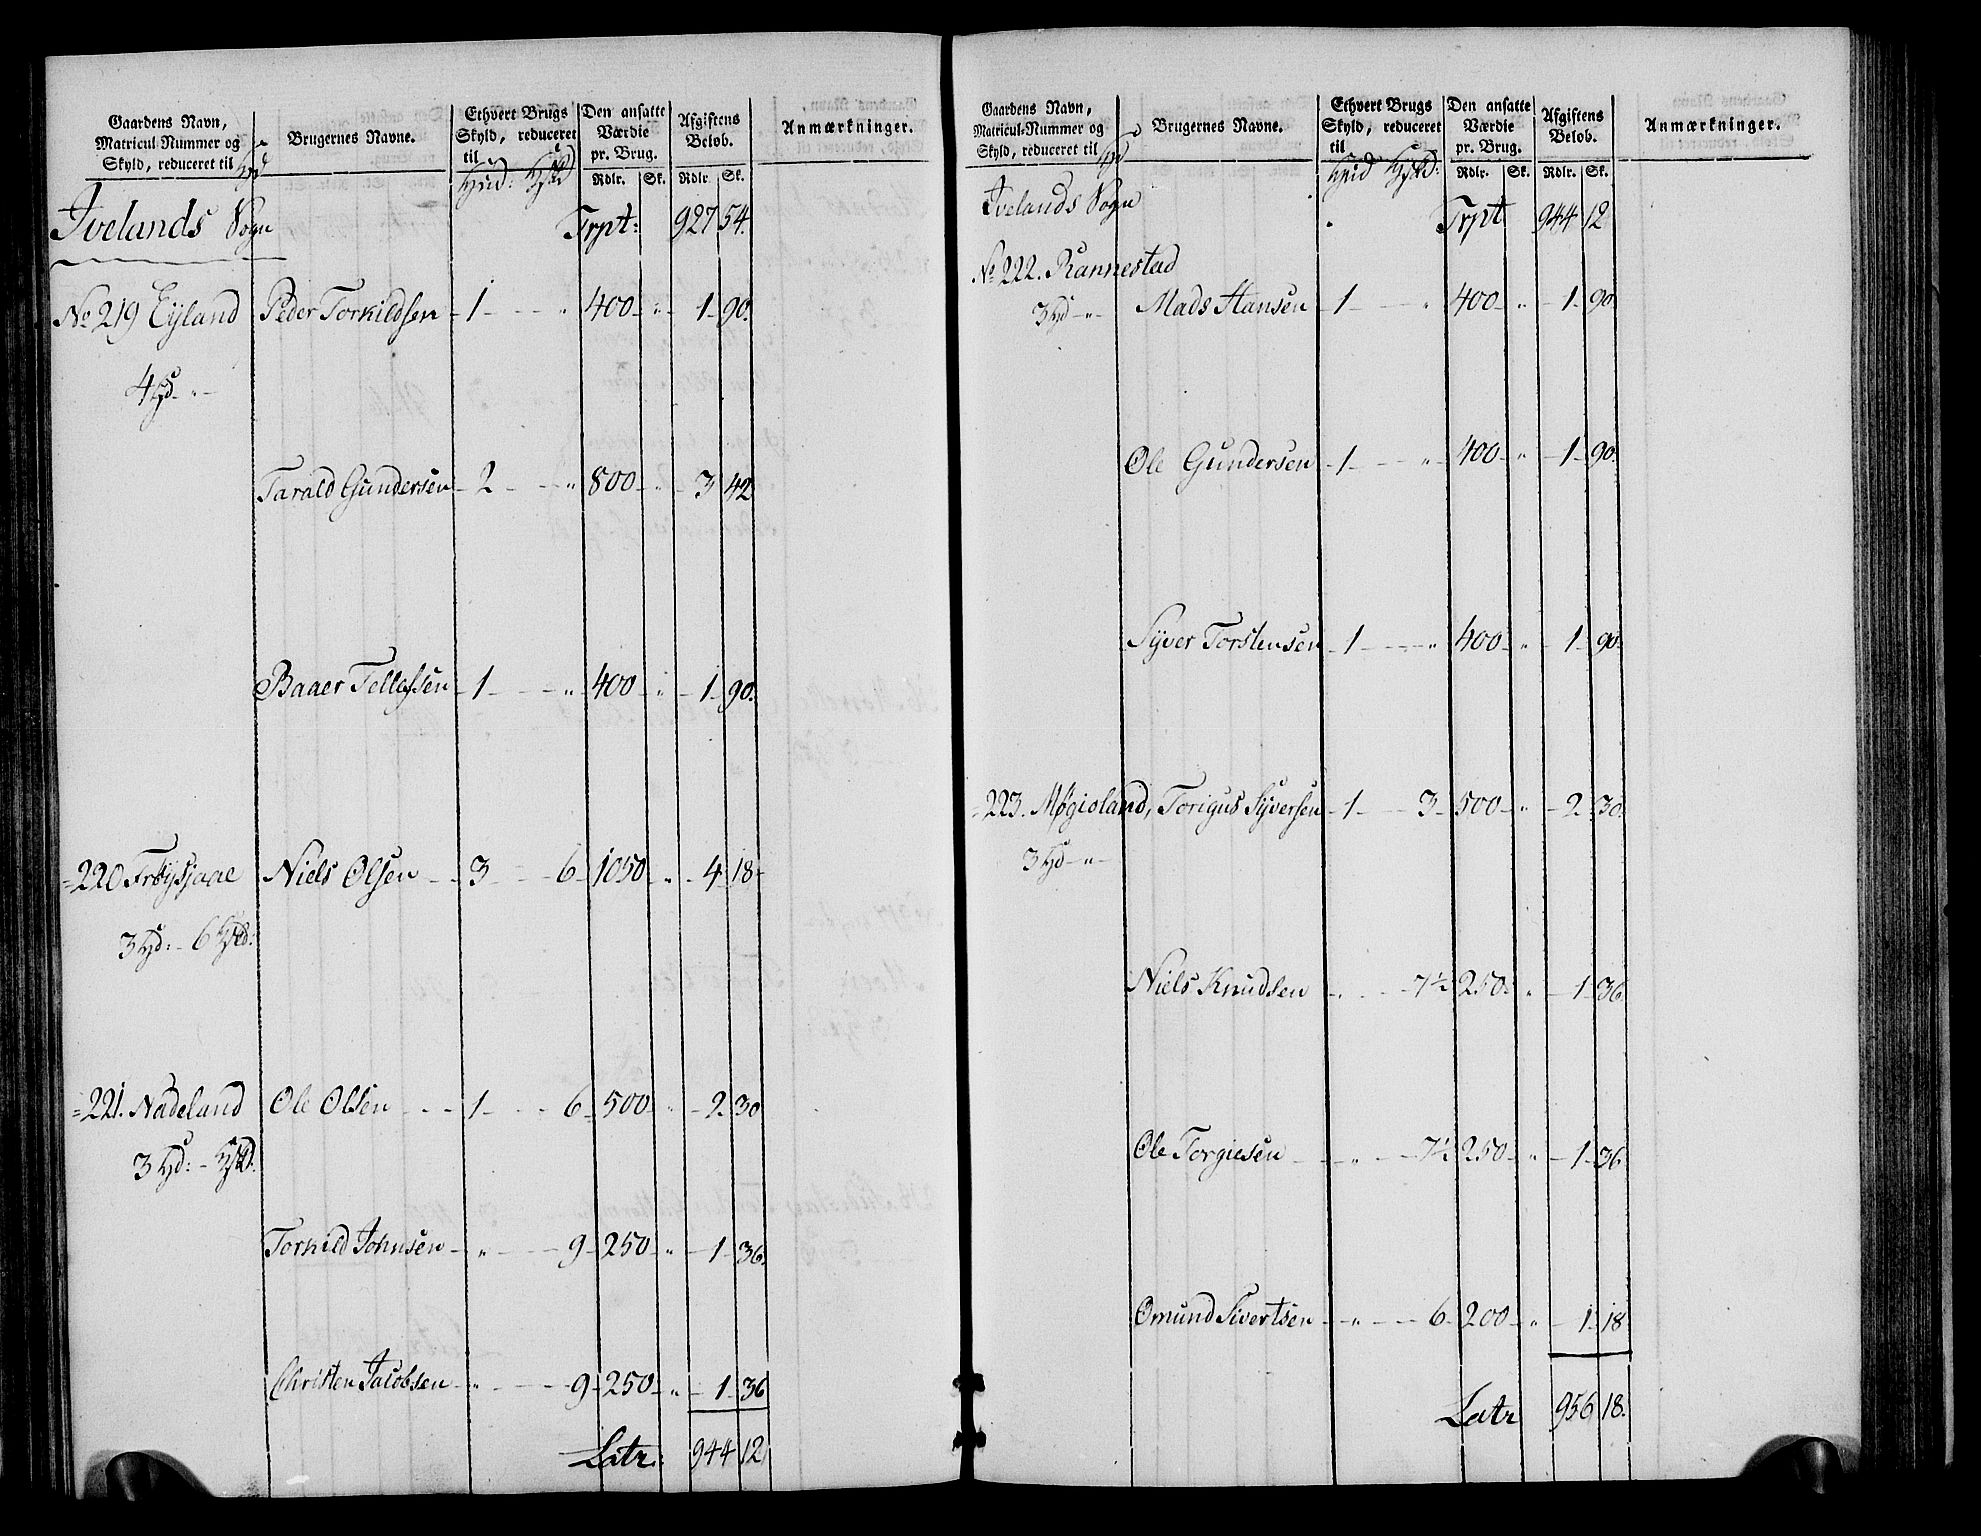 Gaardens Navn, Matricul-Nummer og Skyld, reduceret til Hd | Brugernes Navne. | Ethvert Brugs Skyld, reduceret til Hud: | Den ansatte Værdie pr. Brug. Rdlr. Sk. | Afgiftens Beløb. Rdlr. Sk. | Anmærkninger.
Ivelands Sogn Trpt: 927 54.
No 219 Eyland Peder Torkildsen 1 " 400 " 1 90.
4 Hd "
Tarald Gundersen 2 " 800 " 3 42
Baaer Tellefsen 1 " 400 " 1 90.
=220 Frøysjaae Niels Olsen 3 6 1050 " 4 18
3 Hd: 6
=221. Nadeland Ole Olsen 1 6 500 " 2 30
3 Hd:
Torkild Johnsen " 9 250 " 1 36.
Christen Jacobsen " 9 250 " 1 36
Latr: 944 12
Gaardens Navn, Matricul-Nummer og Skyld, reduceret til Hd | Brugernes Navne. | Ethvert Brugs Skyld, reduceret til Hud | Den ansatte Værdie pr. Brug. Rdlr. Sk. | Afgiftens Beløb. Rdlr. Sk. | Anmærkninger.
Ivelands Sogn Trpt 944 12
No 222. Rannestad
3 Hd " Mads Hansen 1 " 400 " 1 90
Ole Gundersen 1 " 400 " 1 90.
Syver Torstensen 1 " 400 " 1 90
=223. Møgioland, Torigus Syversen 1 3 500 " 2 30.
3 Hd "
Niels Knudsen " 7½ 250 " 1 36
Ole Torgiesen " 7½ 250 " 1 36
Omund Sivertsen " 6 200 " 1 18
Latr 956 18.